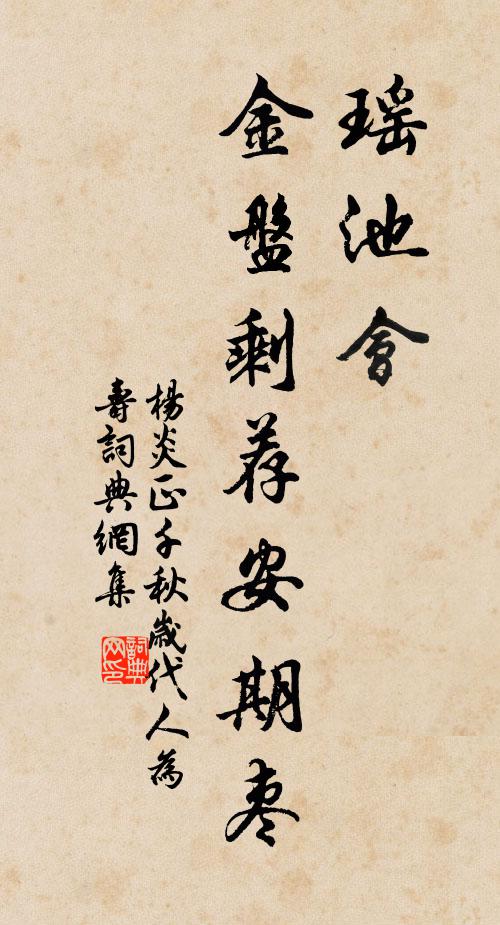 瑶池會
金盤剩荐安期枣
楊炎正千秋歲代人為
壽詞典網集
詞典网印